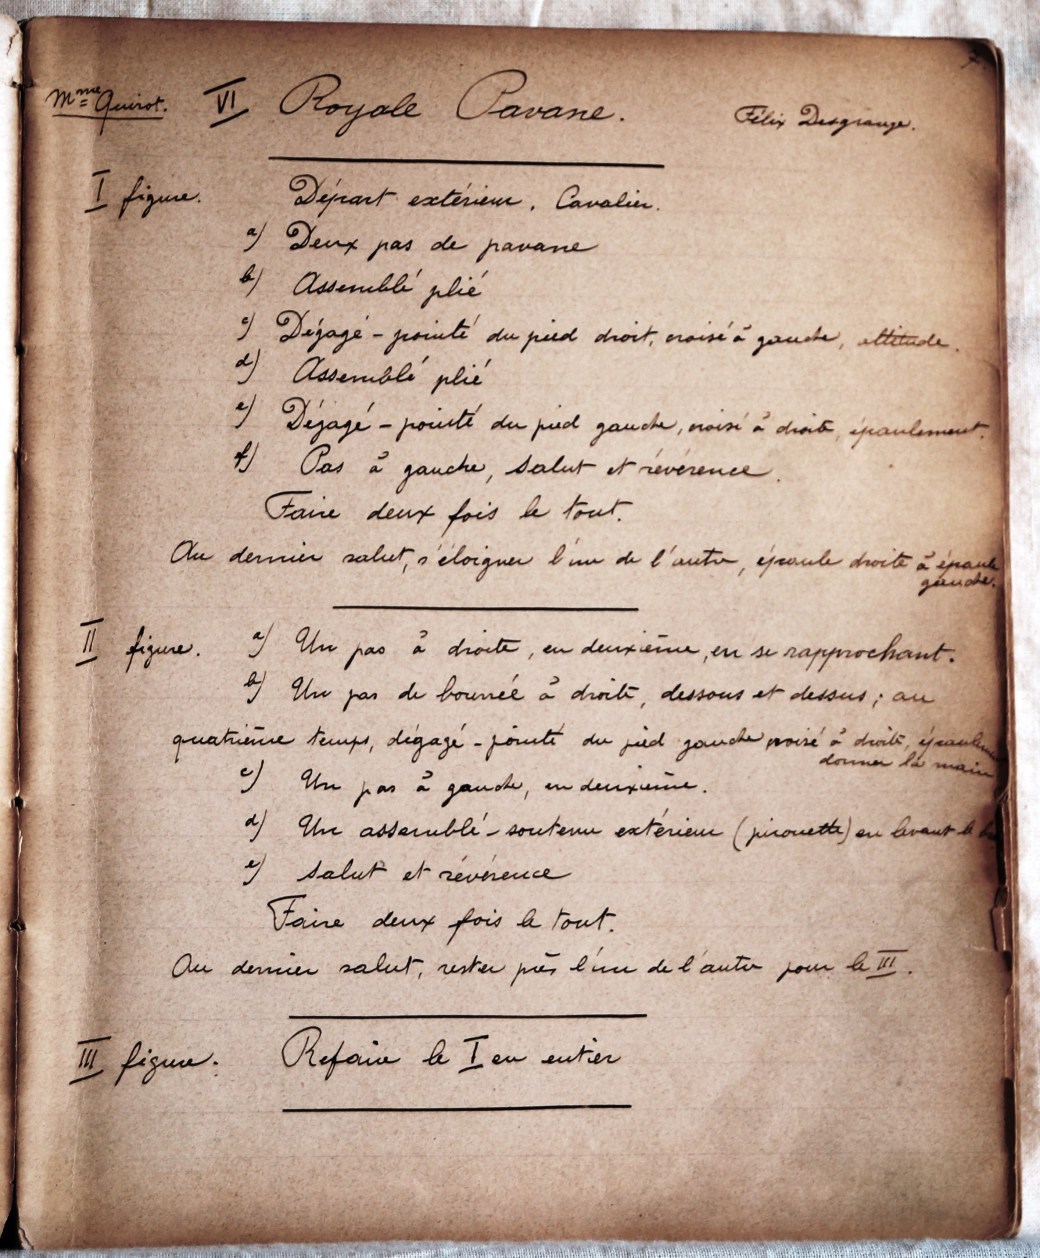 Mme Quirot. VI Royale Pavane. Félix Desgrange.
I figure. Départ extérieur. Cavalier.
a) Deux pas de pavane
b) Assemblé plié
c) Dégagé - pointé du pied droit, croisé à gauche, attitude.
d) Assemblé plié
e) Dégagé - pointé du pied gauche, croisé à droite, épaulement.
f) Pas à gauche, salut et révérence.
Faire deux fois le tout.
Au dernier salut, s'éloigner l'un de l'autre, épaule droite à épaule
gauche.
II figure. a) Un pas à droite, en deuxième, en se rapprochant.
b) Un pas de bourreé à droite, dessous et dessus ; au
quatrième temps, dégagé - pointé du pied gauche croisé à droite,
donner la main
c) Un pas à gauche, en deuxième.
d) Un assemblé - soutenu extérieur (pirouette) en levant le
e) Salut et révérence
Faire deux fois le tout.
Au dernier salut, rester près l'un de l'autre pour le III.
III figure. Refaire le I en entier